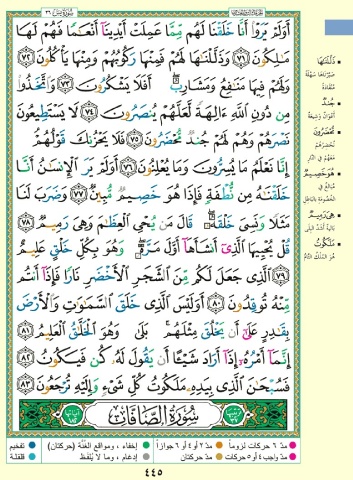 سُورَةُ يسٓ ٣٦
أَوَلَمْ يَرَوْا۟ أَنَّا خَلَقْنَا لَهُم مِّمَّا عَمِلَتْ أَيْدِينَآ أَنْعَٰمًا فَهُمْ لَهَا
مَٰلِكُونَ ٧١ وَذَلَّلْنَٰهَا لَهُمْ فَمِنْهَا رَكُوبُهُمْ وَمِنْهَا يَأْكُلُونَ ٧٢
وَلَهُمْ فِيهَا مَنَٰفِعُ وَمَشَارِبُ ۖ أَفَلَا يَشْكُرُونَ ٧٣ وَٱتَّخَذُوا۟
مِن دُونِ ٱللَّهِ ءَالِهَةً لَّعَلَّهُمْ يُنصَرُونَ ٧٤ لَا يَسْتَطِيعُونَ
نَصْرَهُمْ وَهُمْ لَهُمْ جُندٌ مُّحْضَرُونَ ٧٥ فَلَا يَحْزُنكَ قَوْلُهُمْ ۘ
إِنَّا نَعْلَمُ مَا يُسِرُّونَ وَمَا يُعْلِنُونَ ٧٦ أَوَلَمْ يَرَ ٱلْإِنسَٰنُ أَنَّا
خَلَقْنَٰهُ مِن نُّطْفَةٍ فَإِذَا هُوَ خَصِيمٌ مُّبِينٌ ٧٧ وَضَرَبَ لَنَا
مَثَلًا وَنَسِىَ خَلْقَهُۥ ۖ قَالَ مَن يُحْىِ ٱلْعِظَٰمَ وَهِىَ رَمِيمٌ ٧٨
قُلْ يُحْيِيهَا ٱلَّذِىٓ أَنشَأَهَآ أَوَّلَ مَرَّةٍ ۖ وَهُوَ بِكُلِّ خَلْقٍ عَلِيمٌ ٧٩
ٱلَّذِى جَعَلَ لَكُم مِّنَ ٱلشَّجَرِ ٱلْأَخْضَرِ نَارًا فَإِذَآ أَنتُم
مِّنْهُ تُوقِدُونَ ٨٠ أَوَلَيْسَ ٱلَّذِى خَلَقَ ٱلسَّمَٰوَٰتِ وَٱلْأَرْضَ
بِقَٰدِرٍ عَلَىٰٓ أَن يَخْلُقَ مِثْلَهُم ۚ بَلَىٰ وَهُوَ ٱلْخَلَّٰقُ ٱلْعَلِيمُ ٨١
إِنَّمَآ أَمْرُهُۥٓ إِذَآ أَرَادَ شَيْـًٔا أَن يَقُولَ لَهُۥ كُن فَيَكُونُ ٨٢
فَسُبْحَٰنَ ٱلَّذِى بِيَدِهِۦ مَلَكُوتُ كُلِّ شَىْءٍ وَإِلَيْهِ تُرْجَعُونَ ٨٣
سُورَةُ الصَّافَاتِ
ذَلَّلْنَاهَا
صَيَّرْنَاهَا سَهْلَةً
مُنْقَادَةً
جُنْدٌ
أعوانٌ وشيعةٌ
مُحْضَرُونَ
نُحْضِرُهُمْ
مَعَهُمْ فِي النَّارِ
هُوَ خَصِيمٌ
مُبَالِغٌ فِي
الخُصُومَةِ بِالبَاطِلِ
هِيَ رَمِيمٌ
بَالِيَةٌ أشَدَّ البِلَى
مَلَكُوتُ
هُوَ المُلْكُ التَّامُّ
مدّ ٦ حركات لزوماً
مدّ ٢ أو ٤ أو ٦ جوازاً
إخفاء، ومواقع الغُنَّة (حركتان)
تفخيم
مدّ واجب ٤ أو ٥ حركات
مدّ حركتان
إدغام، وما لا يُلفَظ
قلقلة
٤٤٥